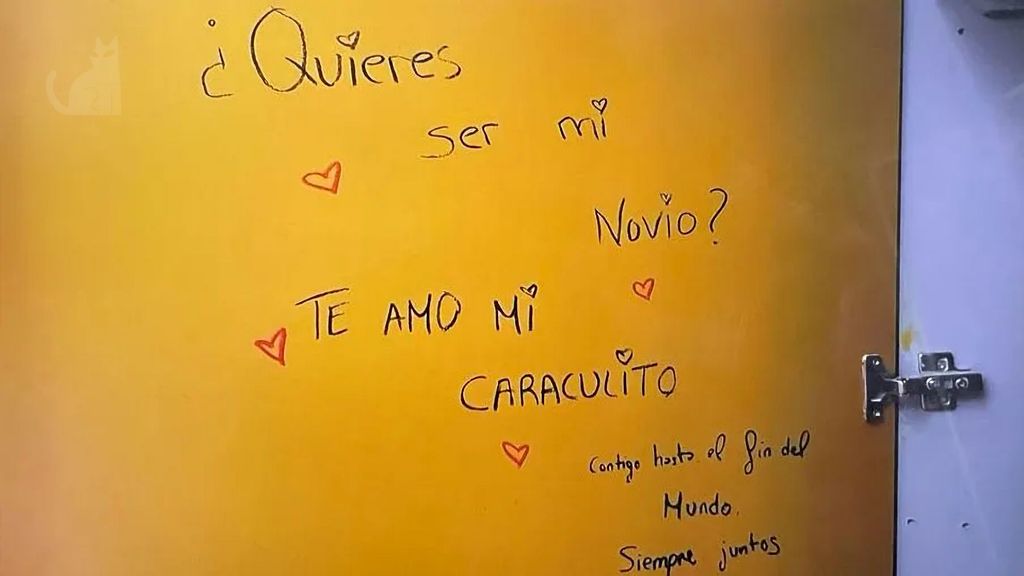 ¿Quieres
ser mi
Novio?
TE AMO MI
CARACULITO
Contigo hasta el fin del
Mundo.
Siempre juntos